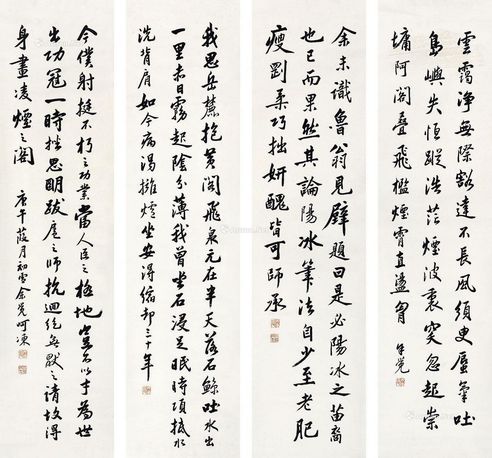 雲靄净無際豁達不長風須臾蜃氣吐
島嶼失恒蹤浩茫煙波裏突忽起崇
墉阿閣疊飛檻煙霄直盪胷
余未識魯翁見壁題曰是必陽冰之苗裔
也已而果然其論陽冰筆法自少至老肥
瘦剛柔巧拙妍醜皆可師承
我思岳麓抱黃閣飛泉元在半天落石鯨吐水出
一里赤日霧起陰分薄我曾坐石浸足眠時項抵水
洗背肩如今病渴擁爐坐安得縮却三十年
今僕射挺不朽之功業當人臣之極地豈不以才為世
出功冠一時挫思明跋扈之師抗迴紇無厭之請故得
身畫凌煙之閣 庚午葭月初雪余覺呵凍